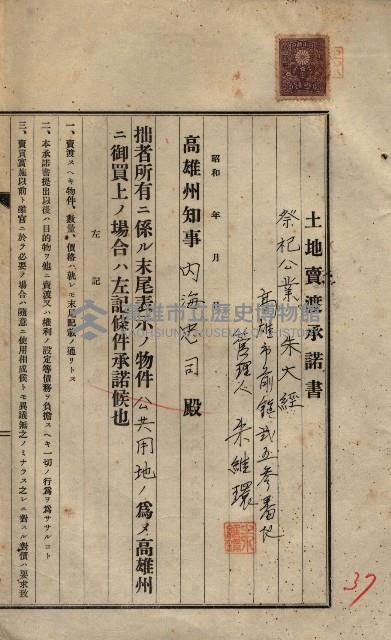 土地賣渡承諾書
祭祀公業 朱大經
高雄市前鎮弐五参番地
管理人 朱維環
昭和 年 月 日
高雄州知事 內海忠司 殿
拙者所有ニ係ル末尾表示ノ物件公共用地ノ為メ高雄州
ニ御買上ノ場合ハ左記條件承諾候也
左記
一、賣渡スヘキ物件、數量、價格ハ孰レモ末尾記載ノ通リトス
二、本承諾書提出以後ハ目的物ヲ他ニ賣渡又ハ權利ノ設定等債務ヲ負擔スヘキ一切ノ行為ヲ為ササルコト
三、賣買實施以前ト雖官ニ於テ必要ノ場合ハ隨意ニ使用相成候トモ異議無之ノミナラス之レニ對スル對價ハ要求致
高雄市立歷史博物館
37